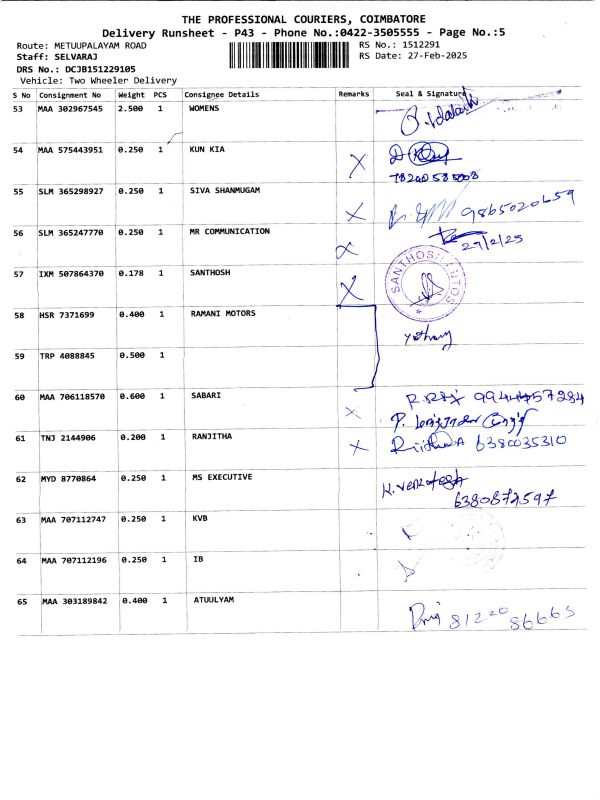 THE PROFESSIONAL COURIERS, COIMBATORE
Delivery Runsheet - P43 - Phone No.:0422-3505555 - Page No.:5
Route: METUUPALAYAM ROAD RS No.: 1512291
Staff: SELVARAJ RS Date: 27-Feb-2025
DRS No.: DCJB151229105
Vehicle: Two Wheeler Delivery
S No Consignment No Weight PCS Consignee Details Remarks Seal & Signature
53 MAA 302967545 2.500 1 WOMENS
54 MAA 575443951 0.250 1 KUN KIA
55 SLM 365298927 0.250 1 SIVA SHANMUGAM 9865020659
56 SLM 365247770 0.250 1 MR COMMUNICATION 27/2/25
57 IXM 507864370 0.178 1 SANTHOSH
58 HSR 7371699 0.400 1 RAMANI MOTORS
59 TRP 4088845 0.500 1
60 MAA 706118570 0.600 1 SABARI
61 TNJ 2144906 0.200 1 RANJITHA 6380035310
62 MYD 8770864 0.250 1 MS EXECUTIVE K. Venkatesh
6380872597
63 MAA 707112747 0.250 1 KVB
64 MAA 707112196 0.250 1 IB
65 MAA 303189842 0.400 1 ATUULYAM 81220
86665